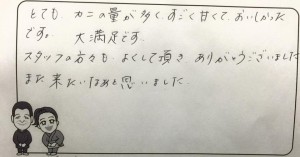 とても カニの量が多く、すごく甘くて、おいしかった
です。 大満足です。
スタッフの方々も よくして頂き ありがとうございました
また 来たいなぁと 思いました